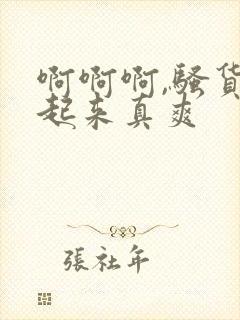 啊啊啊,骚货
起来真爽
張社年